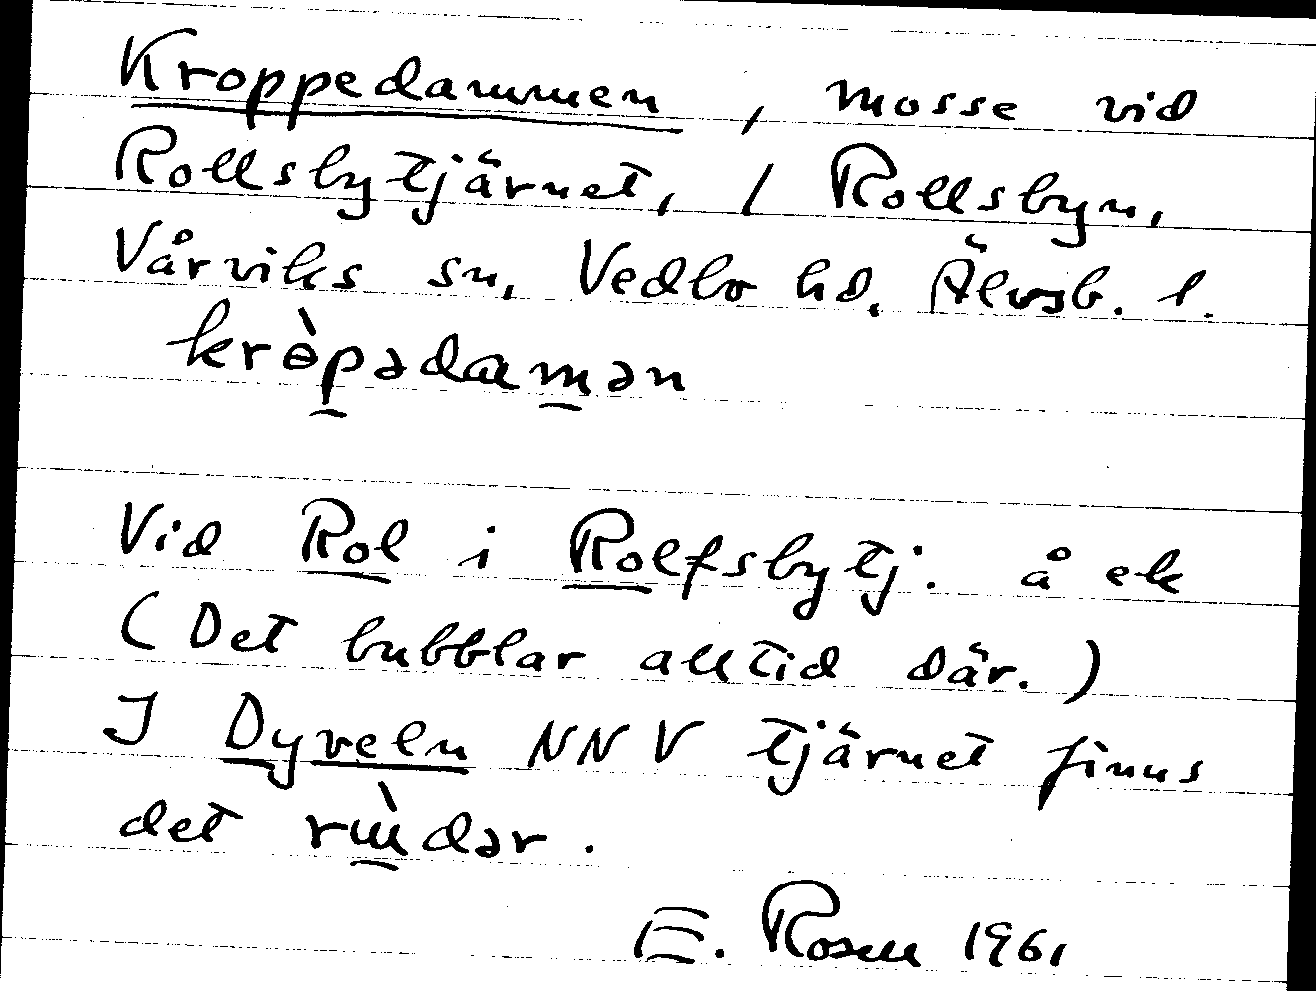 Kroppedammen, mosse vid
Rollsbytjärnet, / Rollsbyn,
Vårviks sn, Vedbo hd, Älvsb. l.
krɵ̀pədamən
Vid Rol i Rolfsbytj. å ek
(Det bubblar alltid där.)
I Dyveln NNV tjärnet finns
det rɯ̀dər.
E. Rosell 1961